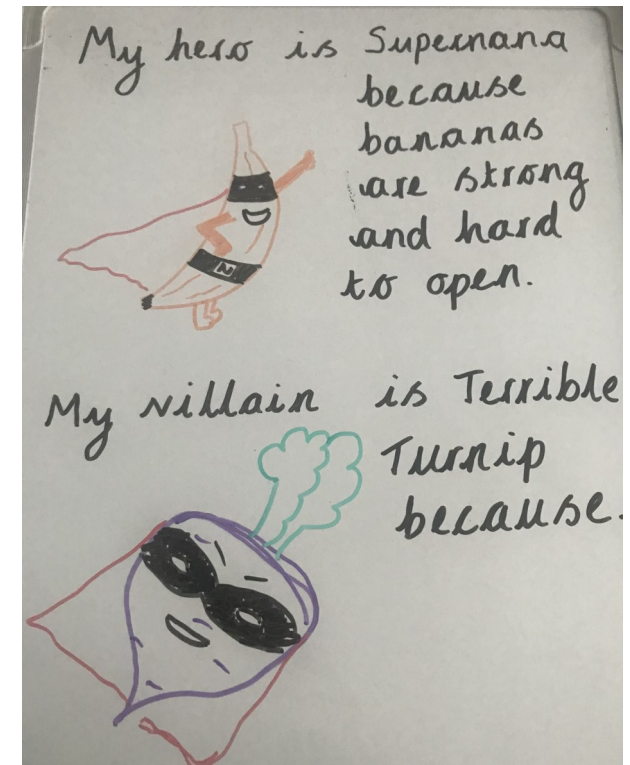 My hero is Supernana
because
bananas
are strong
and hard
to open.
N
My villain is Terrible
Turnip
because.